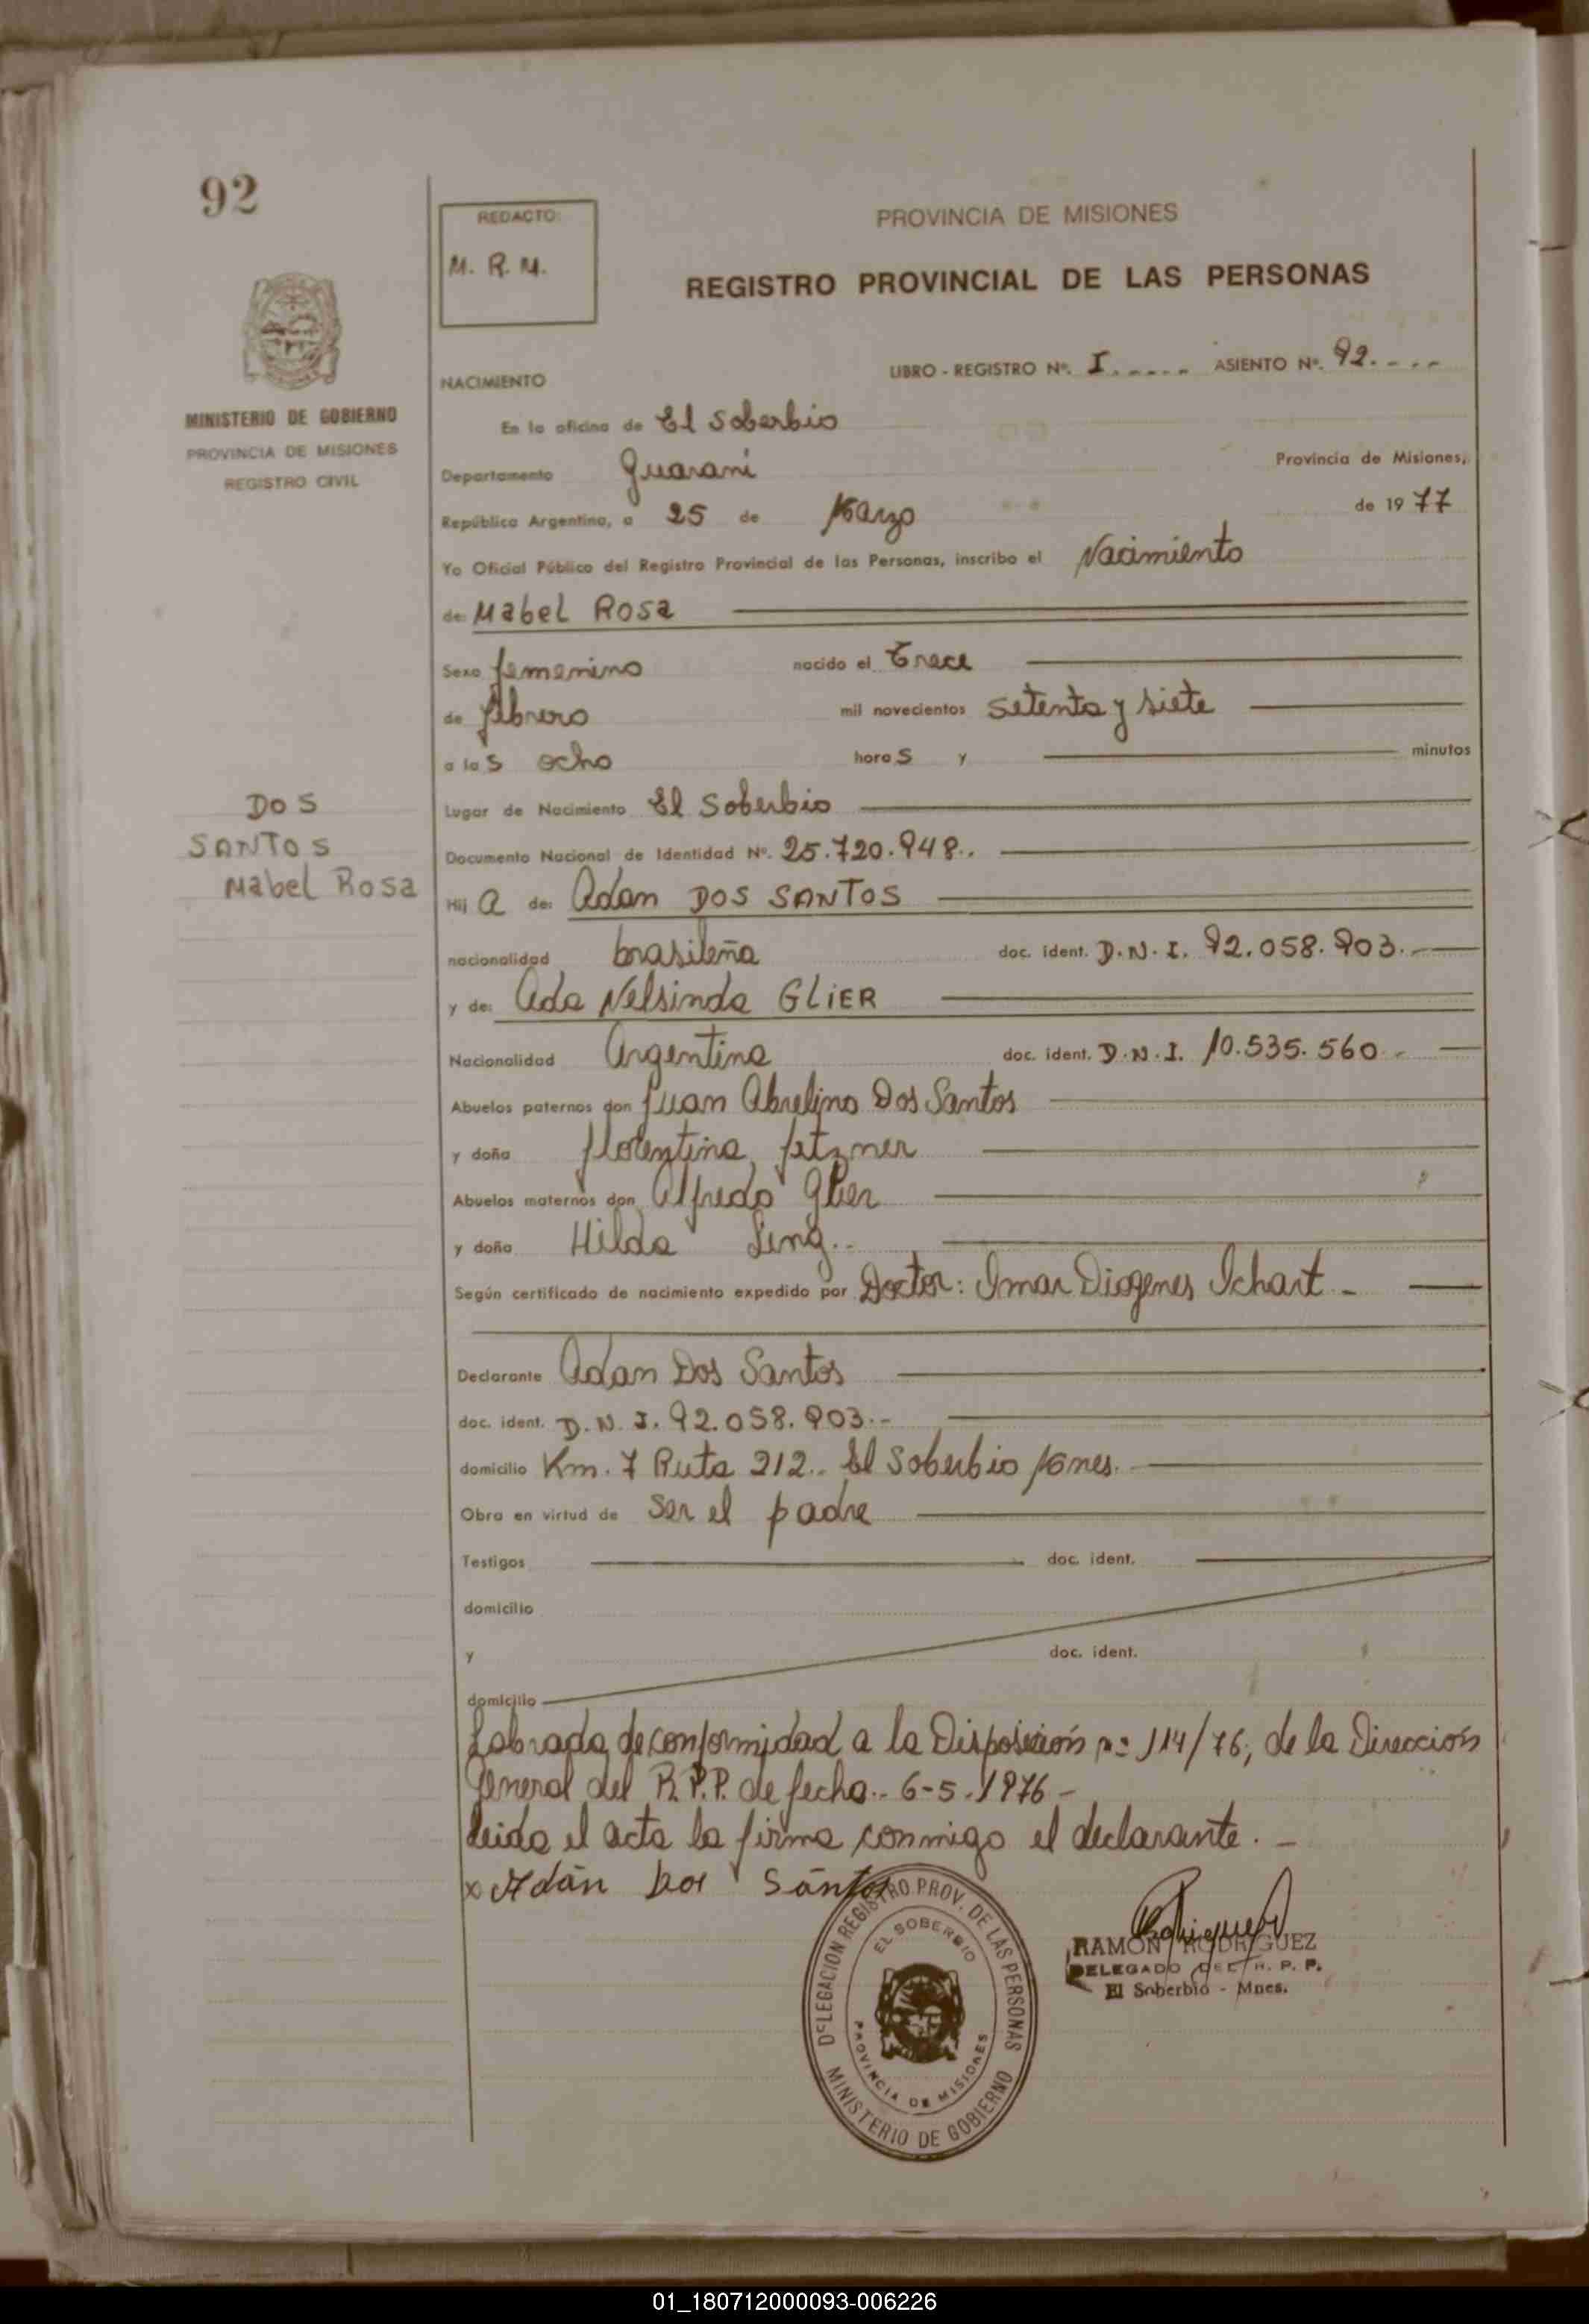 92
REDACTO:
M. R. M.
PROVINCIA DE MISIONES
REGISTRO PROVINCIAL DE LAS PERSONAS
MINISTERIO DE GOBIERNO
PROVINCIA DE MISIONES
REGISTRO CIVIL
NACIMIENTO
LIBRO - REGISTRO Nº. I..... ASIENTO Nº. 92.---
En la oficina de El Soberbio
Departamento Guarani Provincia de Misiones,
República Argentina, a 25 de Marzo de 1977
Yo Oficial Público del Registro Provincial de las Personas, inscribo el Nacimiento
de: Mabel Rosa
Sexo femenino nacido el Trece
de febrero mil novecientos setenta y siete
a las ocho horas y minutos
Lugar de Nacimiento El Soberbio
DOS
SANTOS
Mabel Rosa
Documento Nacional de Identidad Nº. 25.720.948..
Hija de: Adan DOS SANTOS
nacionalidad brasileña doc. ident. D.N.I. 92.058.903.-
y de: Ada Nelsinda GLiER
Nacionalidad Argentina doc. ident. D.N.I. 10.535.560.-
Abuelos paternos don Juan Abrelino Dos Santos
y doña florentina fetzner
Abuelos maternos don Alfredo Glier
y doña Hilda Ling..
Según certificado de nacimiento expedido por Doctor: Imar Diogenes Ichart.-
Declarante Adan Dos Santos
doc. ident. D.N.I. 92.058.903.-
domicilio Km. 7 Ruta 212.. El Soberbio Mnes.
Obra en virtud de ser el padre
Testigos doc. ident.
domicilio
y doc. ident.
domicilio
Labrada de conformidad a la Disposición nº 114/76, de la Dirección
General del R.P.P. de fecha.. 6-5-1976-
Leida el acta la firma conmigo el declarante.-
x Adán Dos Santos
DELEGACION REGISTRO PROV. DE LAS PERSONAS
EL SOBERBIO
PROVINCIA DE MISIONES
MINISTERIO DE GOBIERNO
Rodriguez
RAMON RODRIGUEZ
DELEGADO DEL R. P. P.
El Soberbio - Mnes.
01_180712000093-006226